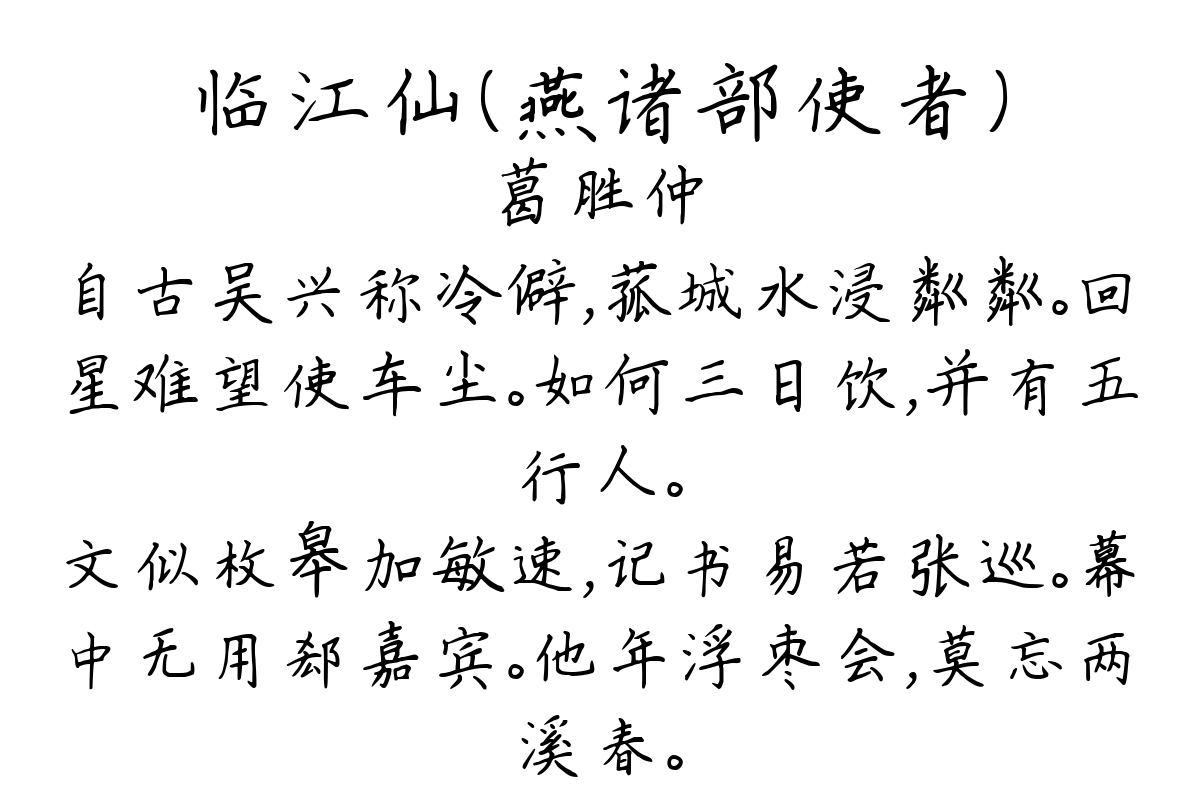 临江仙(燕诸部使者)
葛胜仲
自古吴兴称冷僻,菰城水浸粼粼。回
星难望使车尘。如何三日饮,并有五
行人。
文似枚皋加敏速,记书易若张巡。幕
中无用郄嘉宾。他年浮枣会,莫忘两
溪春。